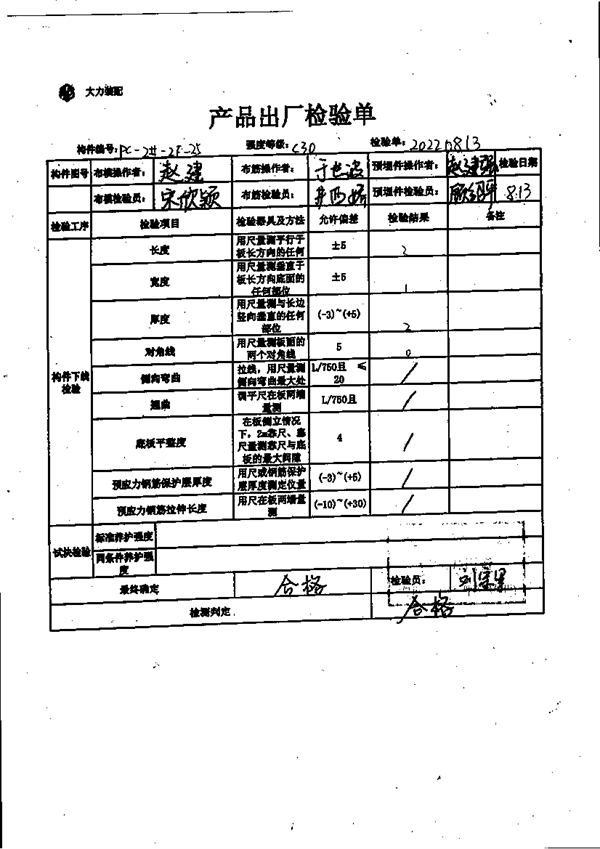 大力装配
产品出厂检验单
构件编号: PC-2#-2F-25 强度等级: C30 检验单: 20220813
构件图号 布模操作者: 赵建 布筋操作者: 预埋件操作者: 赵建强 检验日期
布模检验员: 宋欣颖 布筋检验员: 预埋件检验员: 8.13
检验工序 检验项目 检验器具及方法 允许偏差 检验结果 备注
构件下线检验
长度 用尺量测平行于板长方向的任何 ±5 2
宽度 用尺量测垂直于板长方向底面的任何部位 ±5 1
厚度 用尺量测与长边竖向垂直的任何部位 (-3)~(+5) 2
对角线 用尺量测板面的两个对角线 5 0
侧向弯曲 拉线,用尺量测侧向弯曲最大处 L/750且 ≤20 /
翘曲 调平尺在板两端量测 L/750且 /
底板平整度 在板侧立情况下,2m靠尺、塞尺量测靠尺与底板的最大间隙 4 /
预应力钢筋保护层厚度 用尺或钢筋保护层厚度测定仪量 (-3)~(+5) /
预应力钢筋拉伸长度 用尺在板两端量测 (-10)~(+30) /
试块检验 标准养护强度
同条件养护强度
最终确定 合格 检验员:
检测判定 合格